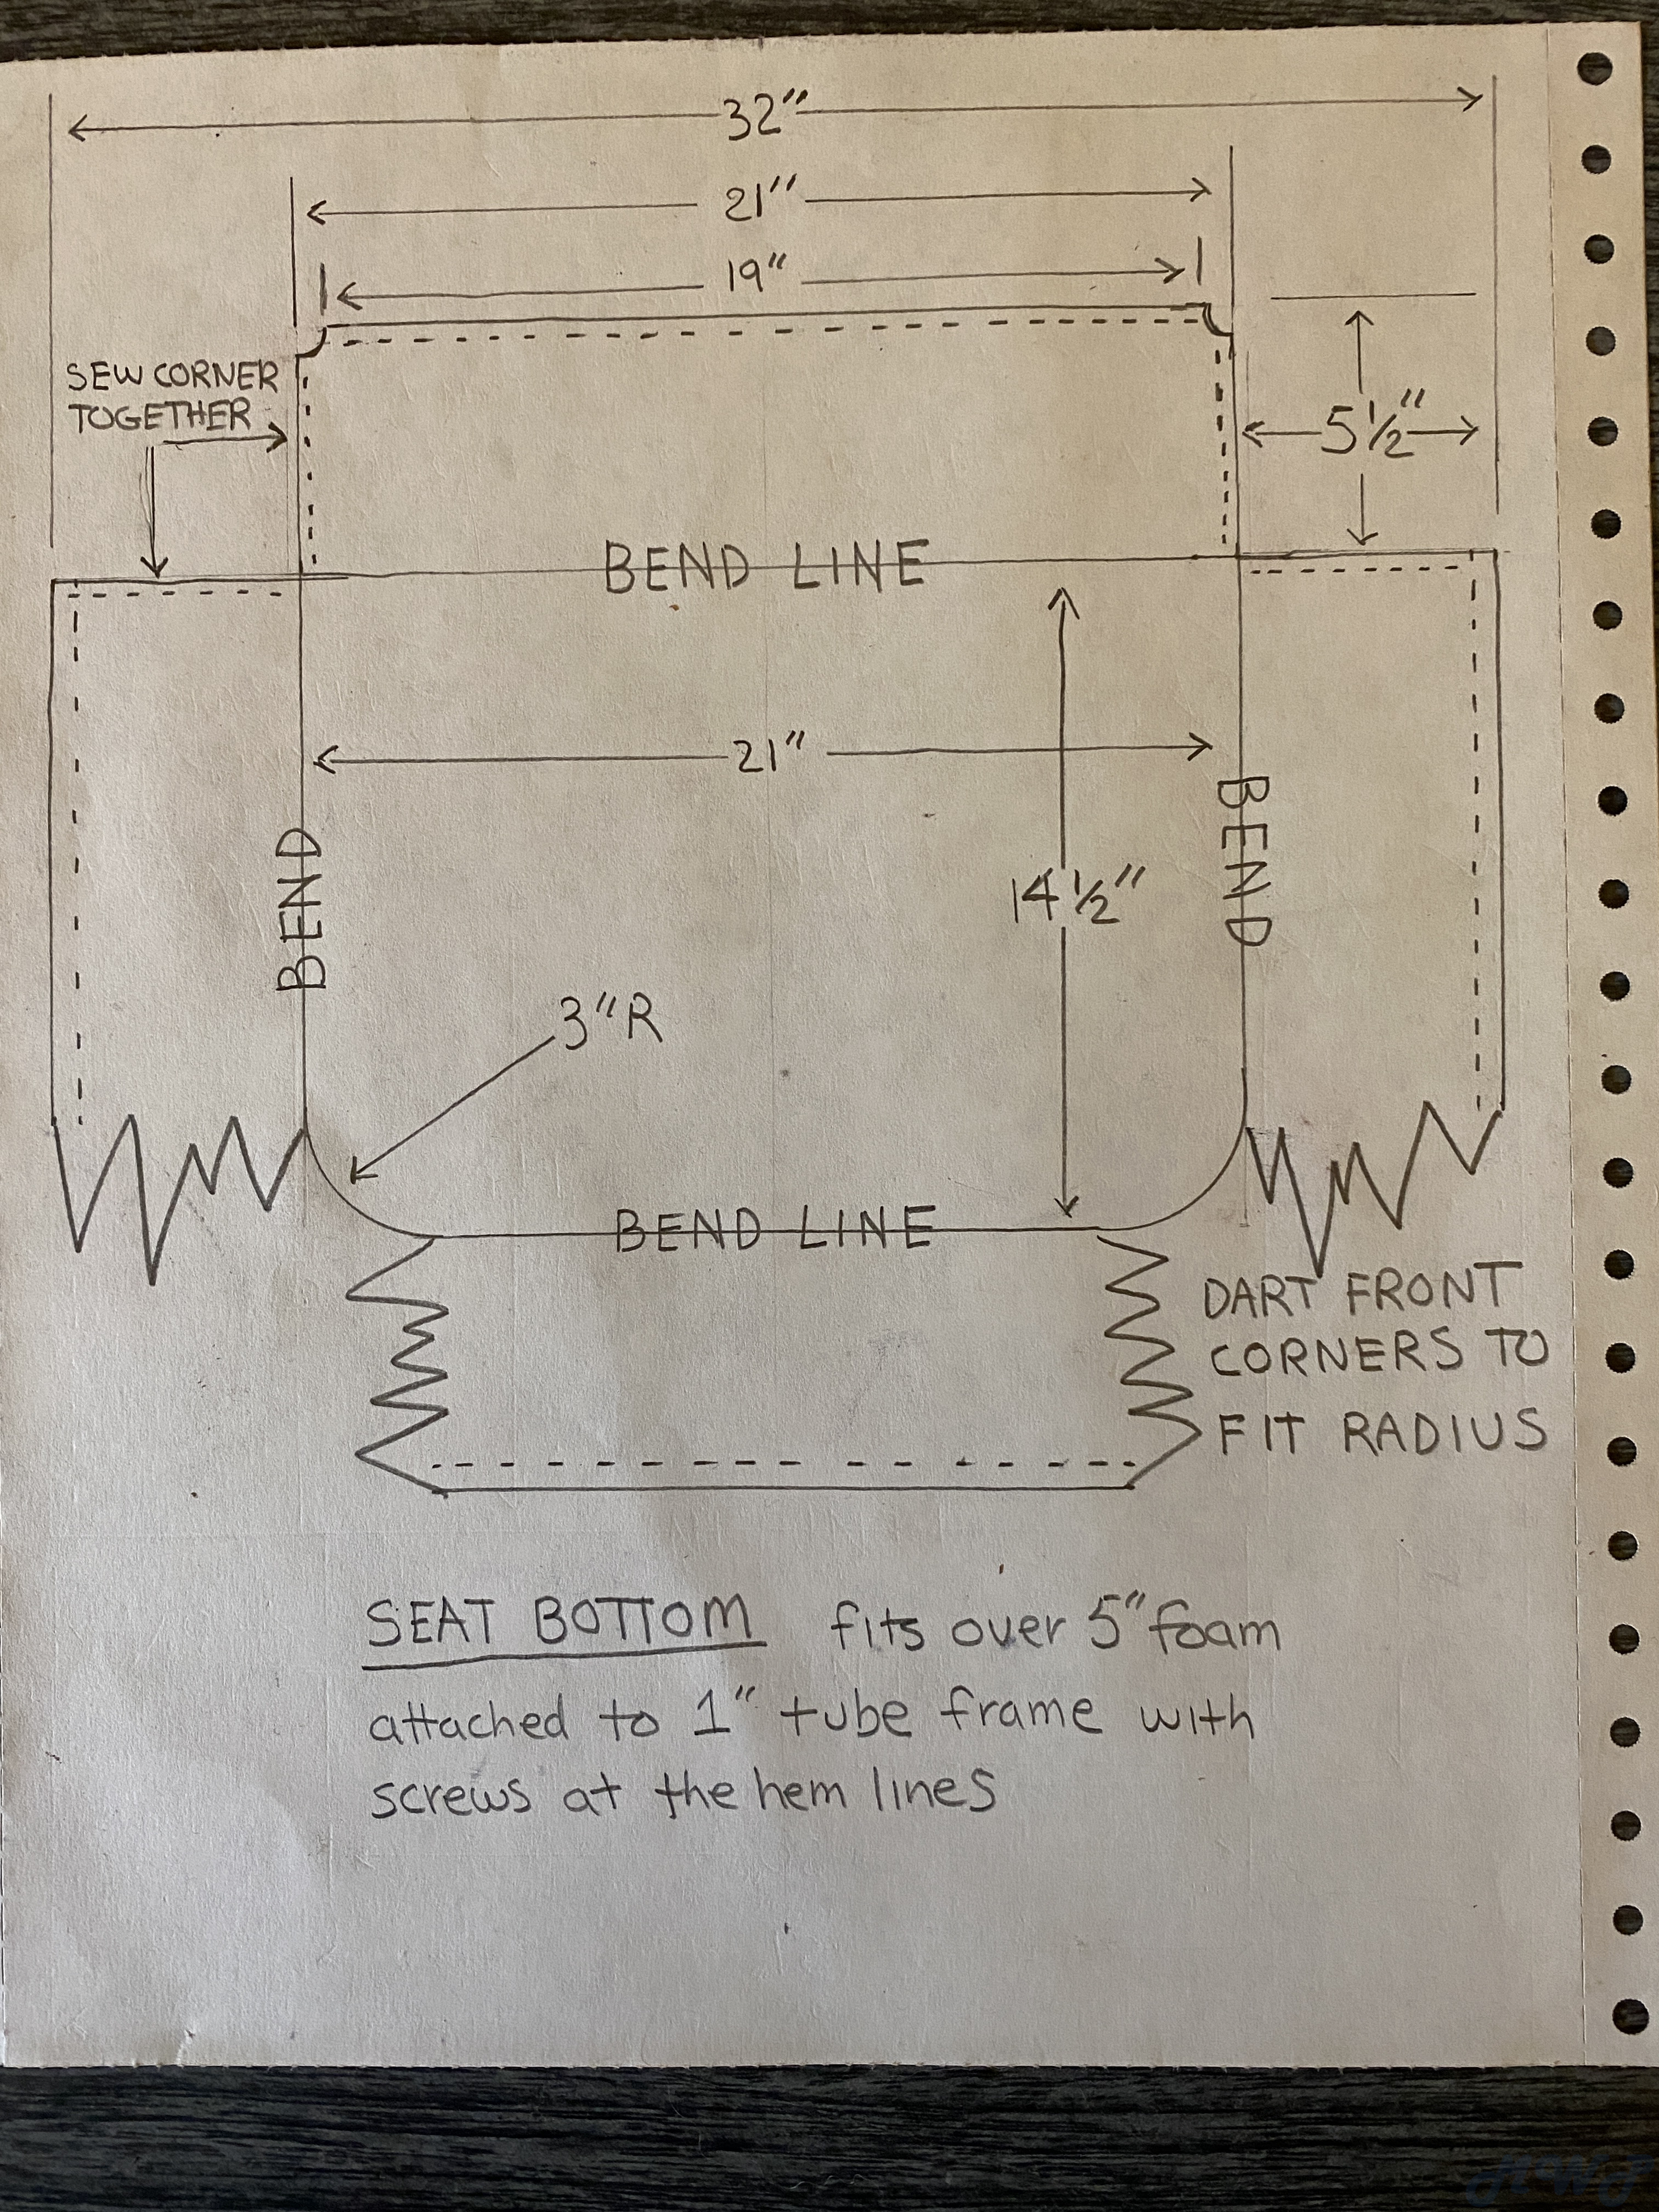 32"
21"
19"
SEW CORNER
TOGETHER
5 1/2"
BEND LINE
21"
BEND
BEND
14 1/2"
3"R
BEND LINE
DART FRONT
CORNERS TO
FIT RADIUS
SEAT BOTTOM fits over 5" foam
attached to 1" tube frame with
screws at the hem lines